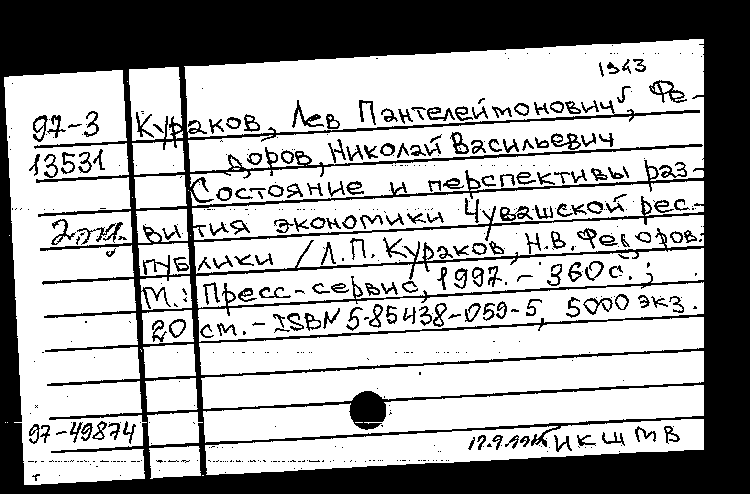 1943
97-3 Кураков, Лев Пантелеймонович, Фе-
13531 доров, Николай Васильевич
Состояние и перспективы раз-
2 отд. вития экономики Чувашской рес-
публики / Л.П. Кураков, Н.В. Федоров.
М.: Пресс-сервис, 1997. - 360 с.;
20 см. - ISBN 5-85438-059-5, 5000 экз.
97-49874